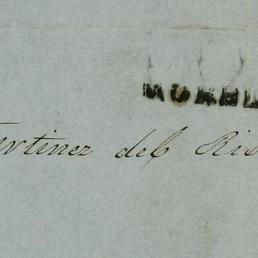 MOREL
rtinez del Rio